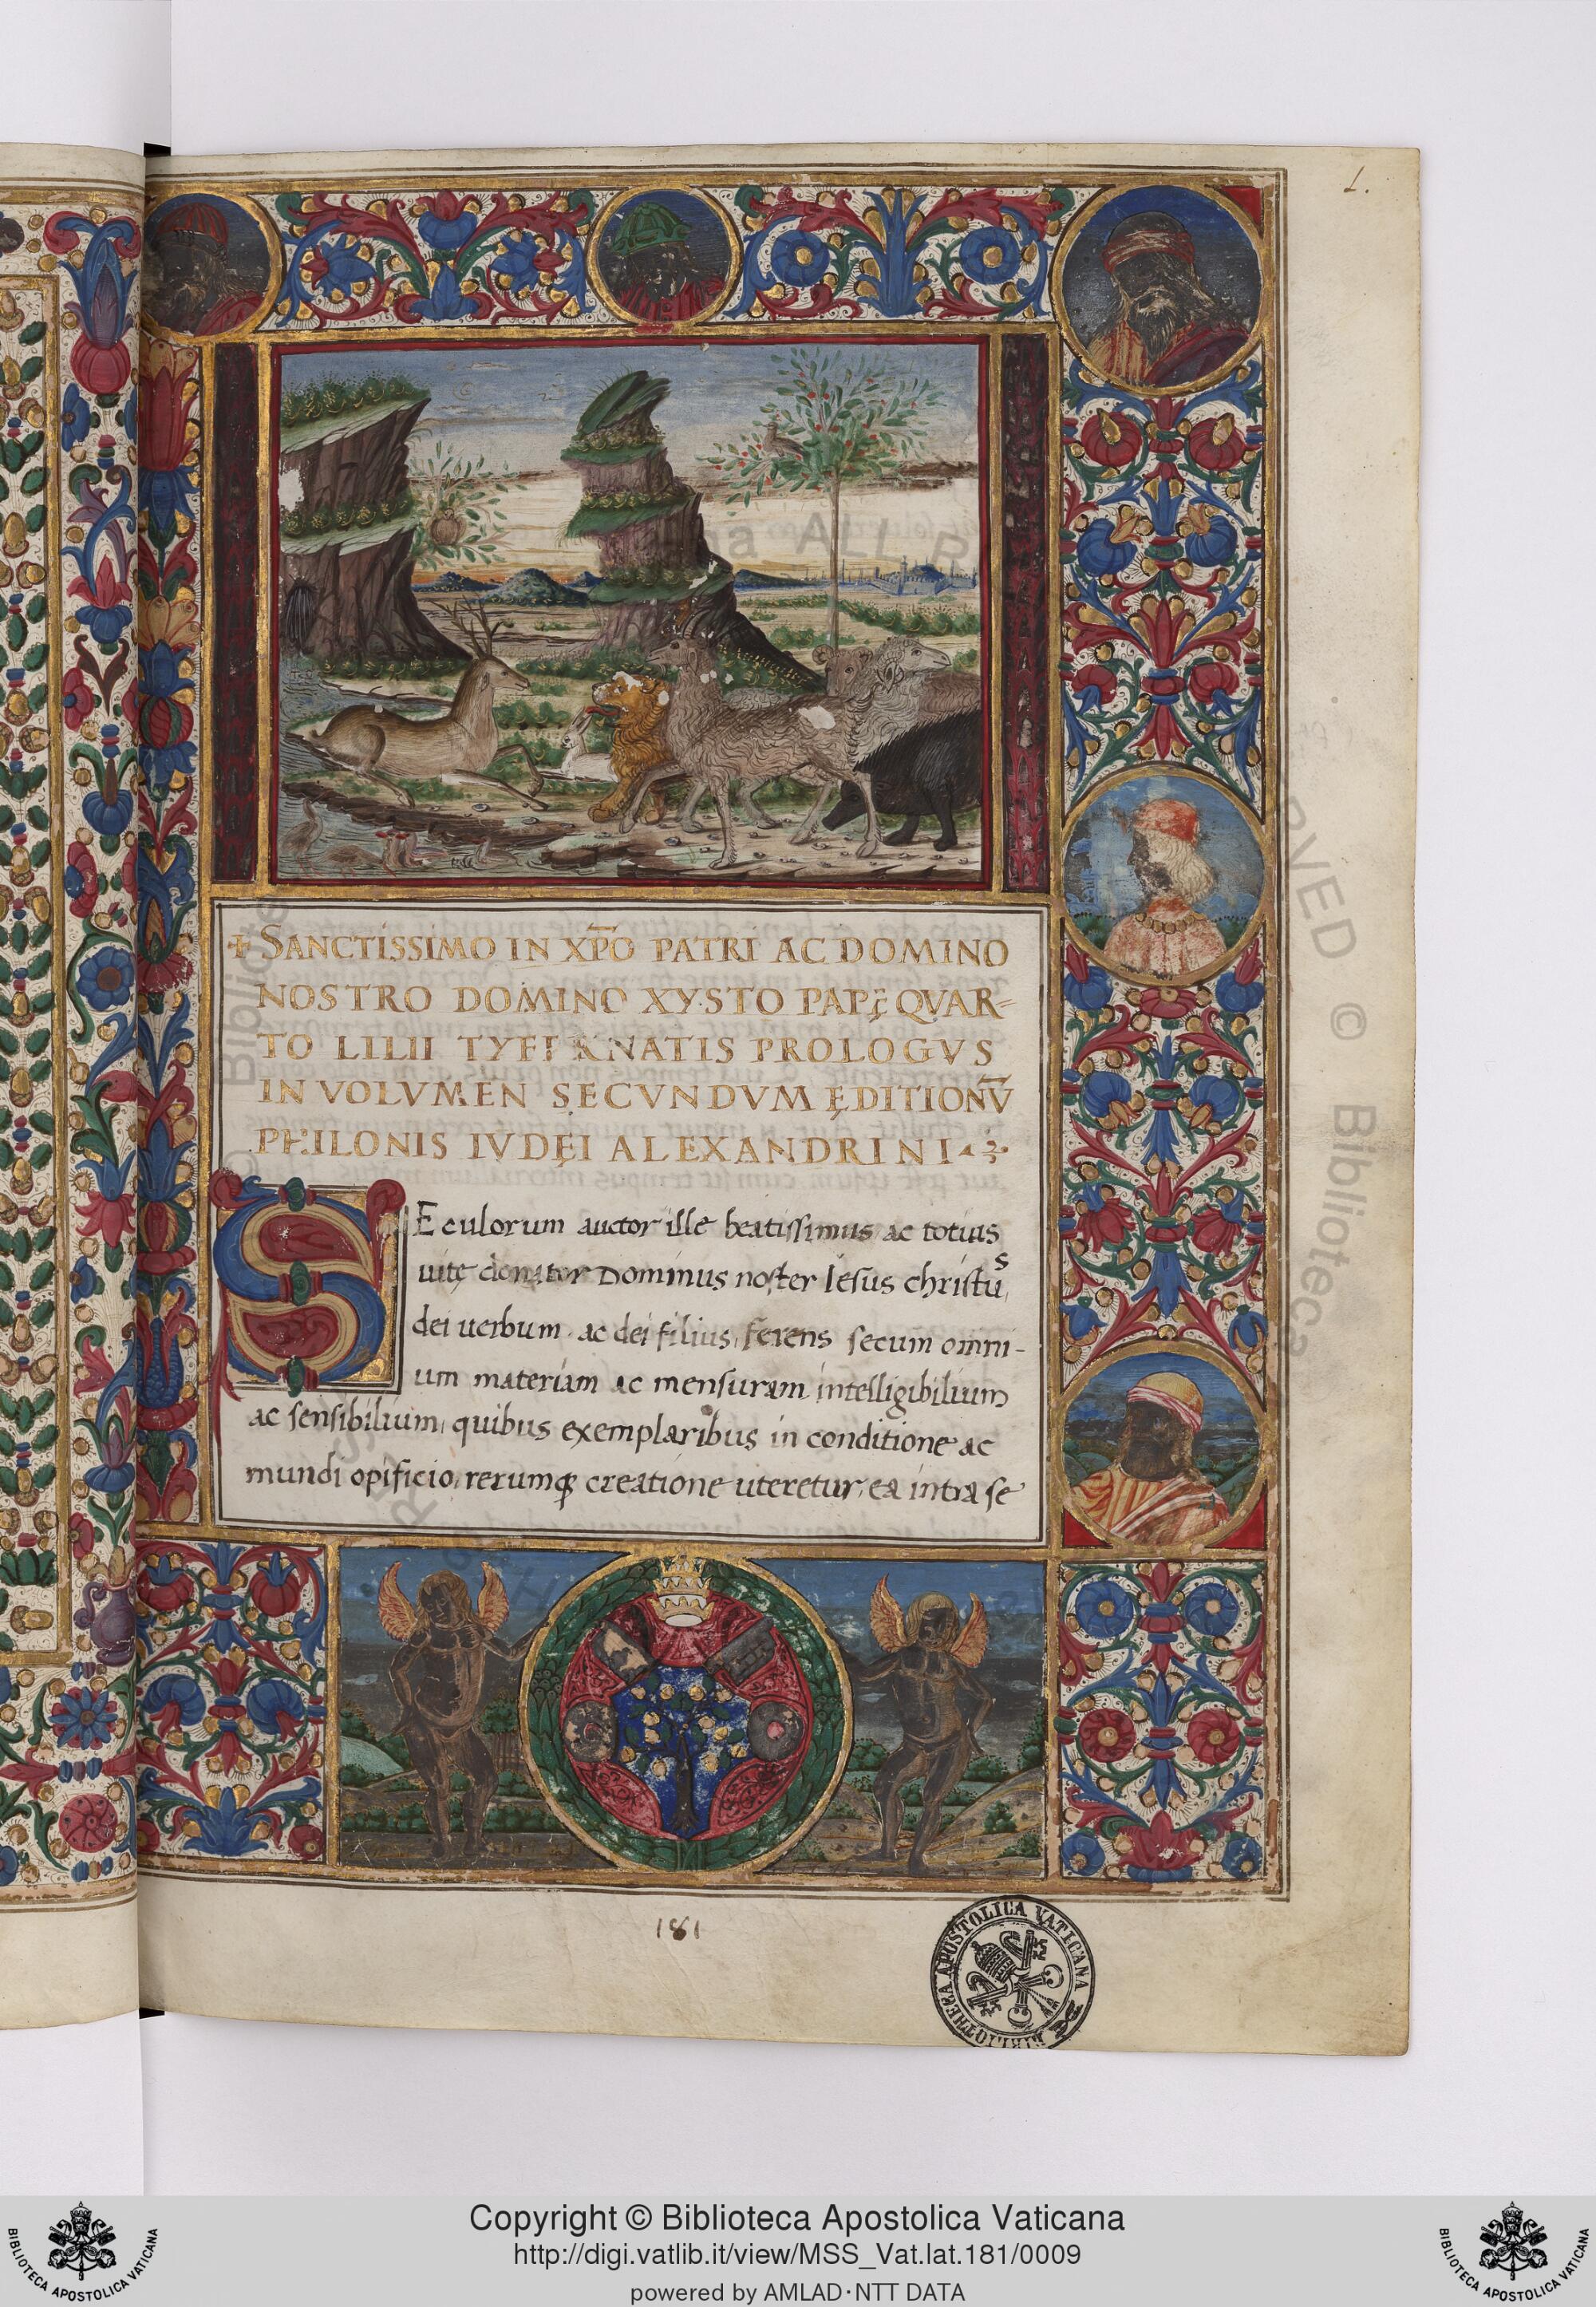 1.
+ SANCTISSIMO IN XP̄O PATRI AC DOMINO
NOSTRO DOMINO XYSTO PAPĘ QVAR-
TO LILII TYFERNATIS PROLOGVS
IN VOLVMEN SECVNDVM ĘDITIONV̄
PHILONIS IVDĘI ALEXANDRINI
SEculorum auctor ille beatissimus ac totius
uitę donator Dominus noster Iesus christus,
dei uerbum, ac dei filius, ferens secum omni-
um materiam ac mensuram intelligibilium
ac sensibilium, quibus exemplaribus in conditione ac
mundi opificio, rerumq creatione uteretur, ea intra se
181
BIBLIOTHECA APOSTOLICA VATICANA
Copyright © Biblioteca Apostolica Vaticana
http://digi.vatlib.it/view/MSS_Vat.lat.181/0009
powered by AMLAD·NTT DATA
BIBLIOTECA APOSTOLICA VATICANA
BIBLIOTECA APOSTOLICA VATICANA